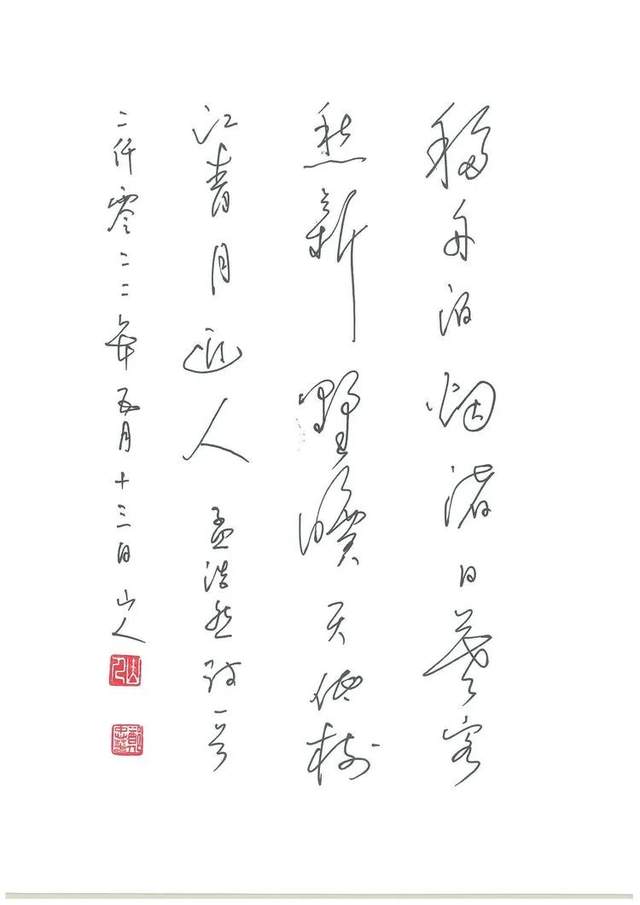 移舟泊烟渚日暮客
愁新野曠天低树
江青月近人 孟浩然诗一首
二仟零二二年五月十三日 山人
山人